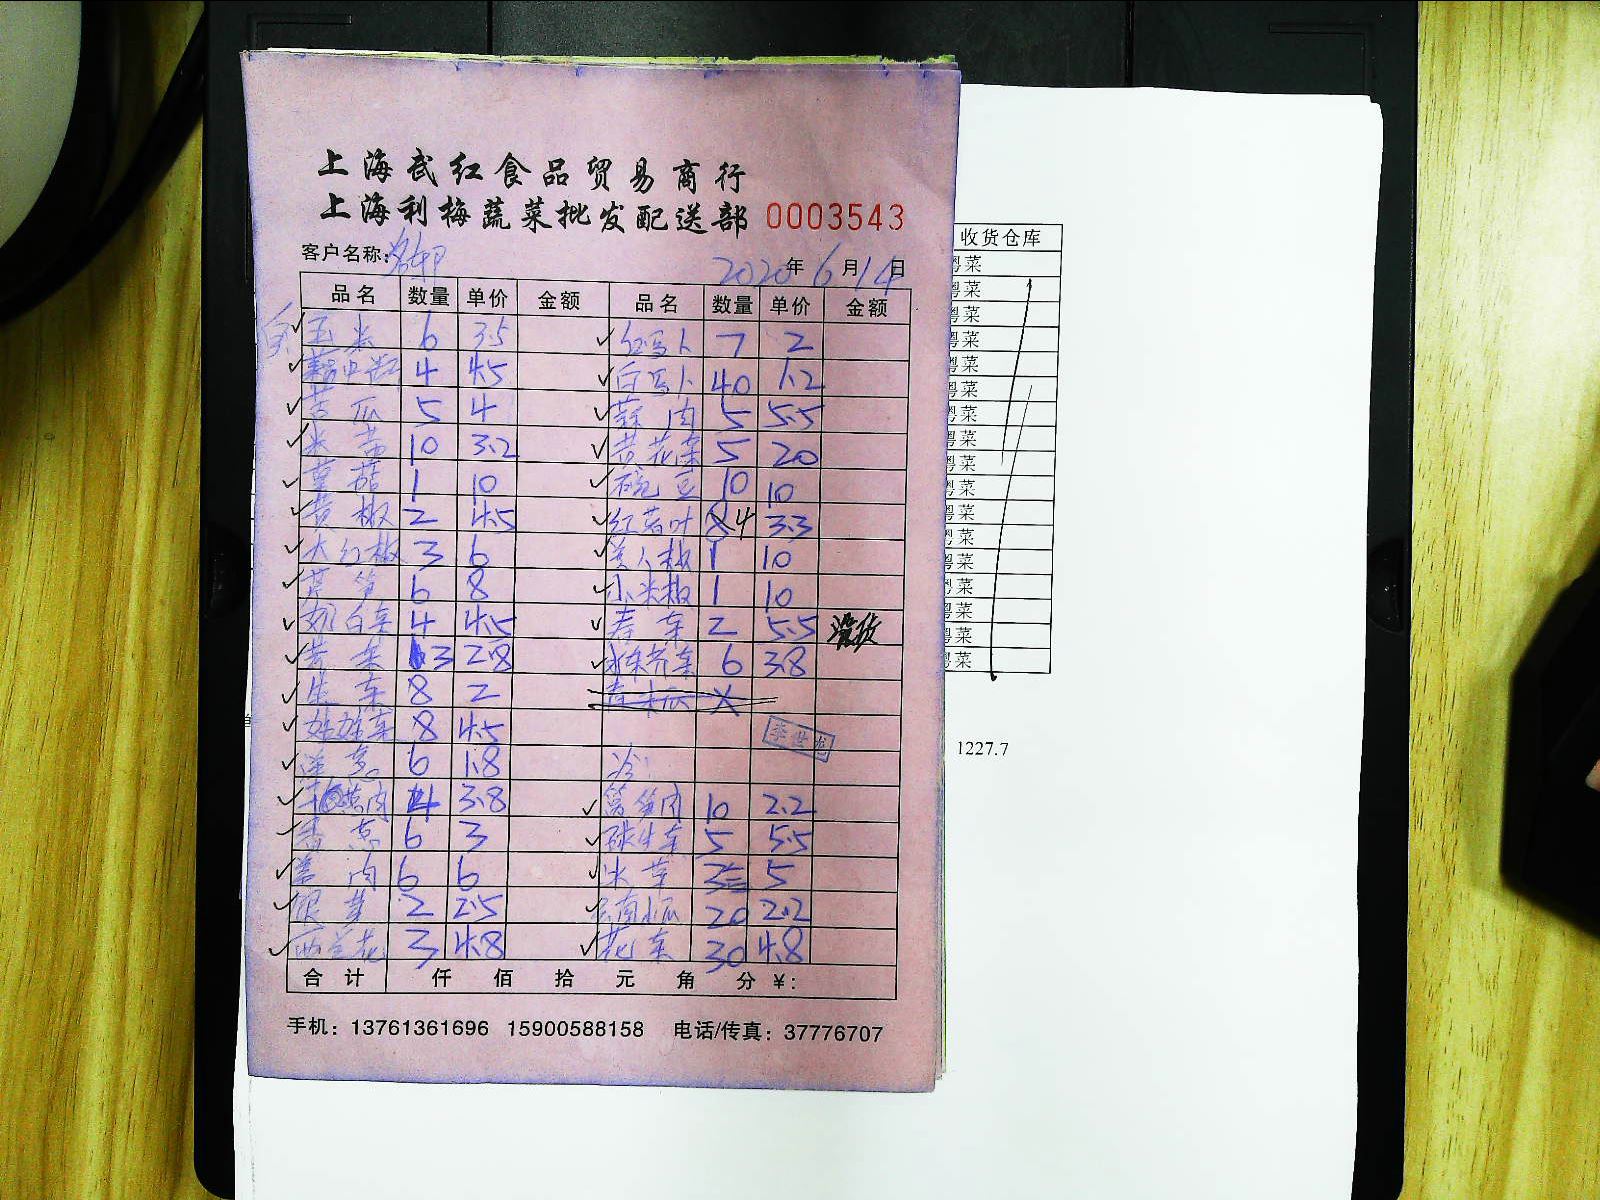 上海武红食品贸易商行
上海利梅蔬菜批发配送部 0003543
客户名称: 2020年6月14日
品名 数量 单价 金额 品名 数量 单价 金额
玉米 6 3.5 红萝卜 7 2
4 4.5 白萝卜 40 1.2
苦瓜 5 4 蒜肉 5 5.5
米苋 10 3.2 黄花菜 5 20
草菇 1 10 豌豆 10 10
黄椒 2 4.5 红薯叶 4 3.3
大红椒 3 6 美人椒 1 10
芦笋 6 8 小米椒 1 10
奶白菜 4 4.5 2 5.5 没货
3 2.8 水东芥菜 6 3.8
生菜 8 2
娃娃菜 8 4.5 李世龙
洋葱 6 1.8
4 3.8 莴笋肉 10 2.2
6 3 球生菜 5 5.5
姜肉 6 6 冰草 5
银芽 2 2.5 云南小瓜 20 2.2
西兰花 3 4.8 花菜 30 4.8
合计 仟 佰 拾 元 角 分 ¥:
手机: 13761361696 15900588158 电话/传真: 37776707
收货仓库
粤菜
粤菜
粤菜
粤菜
粤菜
粤菜
粤菜
粤菜
粤菜
粤菜
粤菜
粤菜
粤菜
粤菜
粤菜
粤菜
粤菜
1227.7